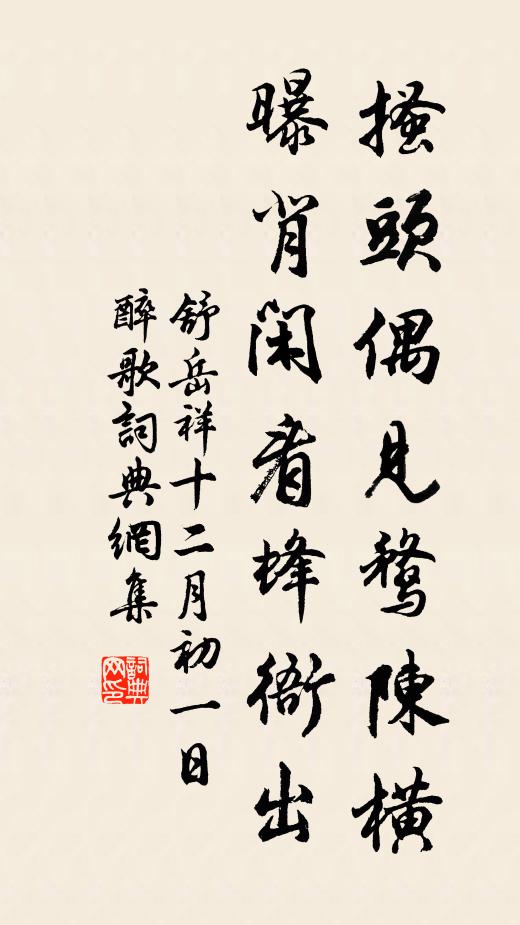 搔頭偶見鶩陳橫
曝背閑看蜂衙出
舒岳祥十二月初一日
醉歌詞典網集
詞典网印